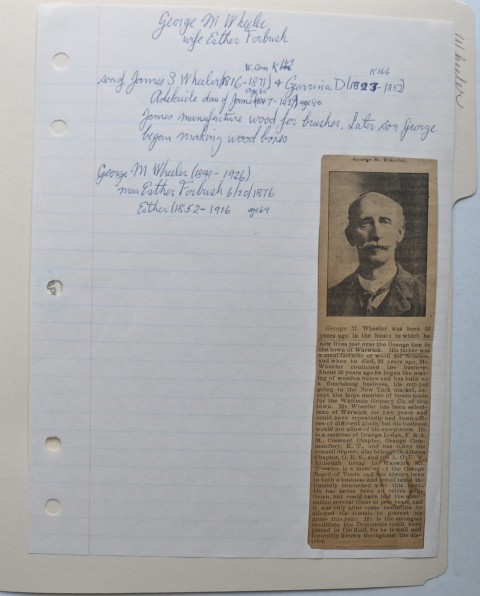 Wheeler
George M Wheeler
wife Esther Forbush
W. Cem
K166
son of James S Wheeler (1816-1871) & D (1823-1852)
Adelaide dau of James age 80
James manufacture wood for brushes. Later son George
began making wood boxes
George M Wheeler (1848-1926)
mar Esther Forbush 6/20/1876
Esther (1852-1916 age 64
George M. Wheeler.
George M. Wheeler was born
years ago in the house in which he
now lives just over the Orange line in
the town of Warwick. His father was
a manufacturer of wood for brushes,
and when he died, years ago, Mr.
Wheeler continued the business.
About years ago he began the mak-
ing of wooden boxes and has built up
a flourishing business, his output
going to the New York market, ex-
cept the large number of boxes made
for the Whitman Grocery Co. of this
town. Mr. Wheeler has been select-
man of Warwick for two years and
could have repeatedly had town offi-
ces of different kinds, but his business
would not allow of his acceptance. He
is a member of Orange Lodge, F. & A.
M., Crescent Chapter, Orange Com-
mandery, K. T., and has taken the
council degree; also belongs to Athena
Chapter, O. E. S., and the A. O. U. W.
Although living in Warwick Mr.
Wheeler is a member of the Orange
Board of Trade and has always been
in both a business and social sense in-
timately connected with this town.
He has never been an office
but could have had the nomi-
nation several times in past years, and
it was only after some hesitation he
allowed his friends to present his
name this year. He is the strongest
candidate the Democrats could have
placed in the field, for he is well and
favorably known throughout the dis-
trict.